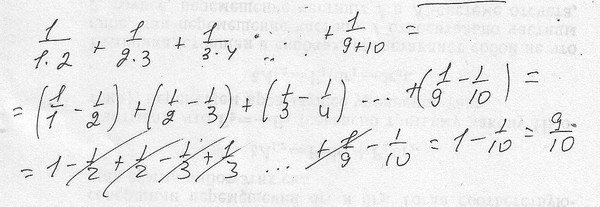 1/1·2 + 1/2·3 + 1/3·4 ... + 1/9+10 =
= (1/1 - 1/2) + (1/2 - 1/3) + (1/3 - 1/4) ... + (1/9 - 1/10) =
= 1 - 1/2 + 1/2 - 1/3 + 1/3 ... + 1/9 - 1/10 = 1 - 1/10 = 9/10